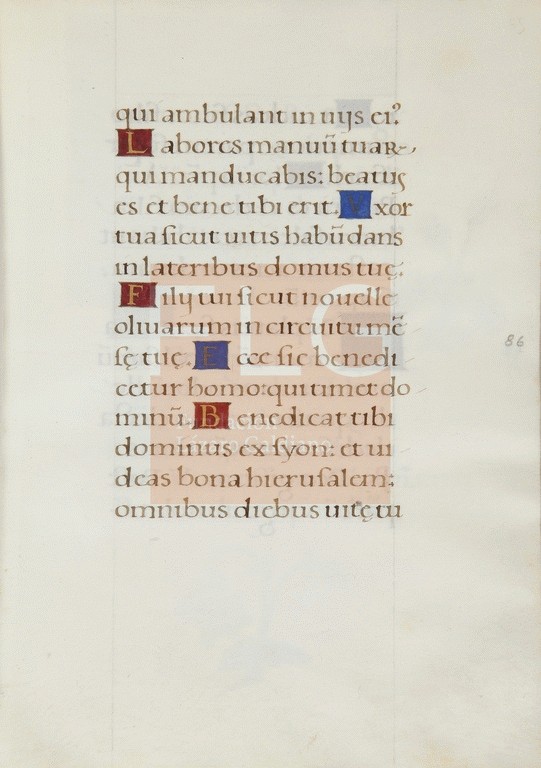 qui ambulant in uijs ei?
Labores manuū tuaꝝ
qui manducabis: beatus
es et bene tibi erit. Vxor
tua ſicut uitis habūdans
in lateribus domus tuę.
Filij tui ſicut nouelle
oliuarum in circuitu mē
ſę tuę. Ecce ſic benedi
cetur homo: qui timet do
minū. Benedicat tibi
dominus ex ſyon: et ui
deas bona hieruſalem:
omnibus diebus uitę tu
86
FLG
Fundación
Lázaro Galdiano